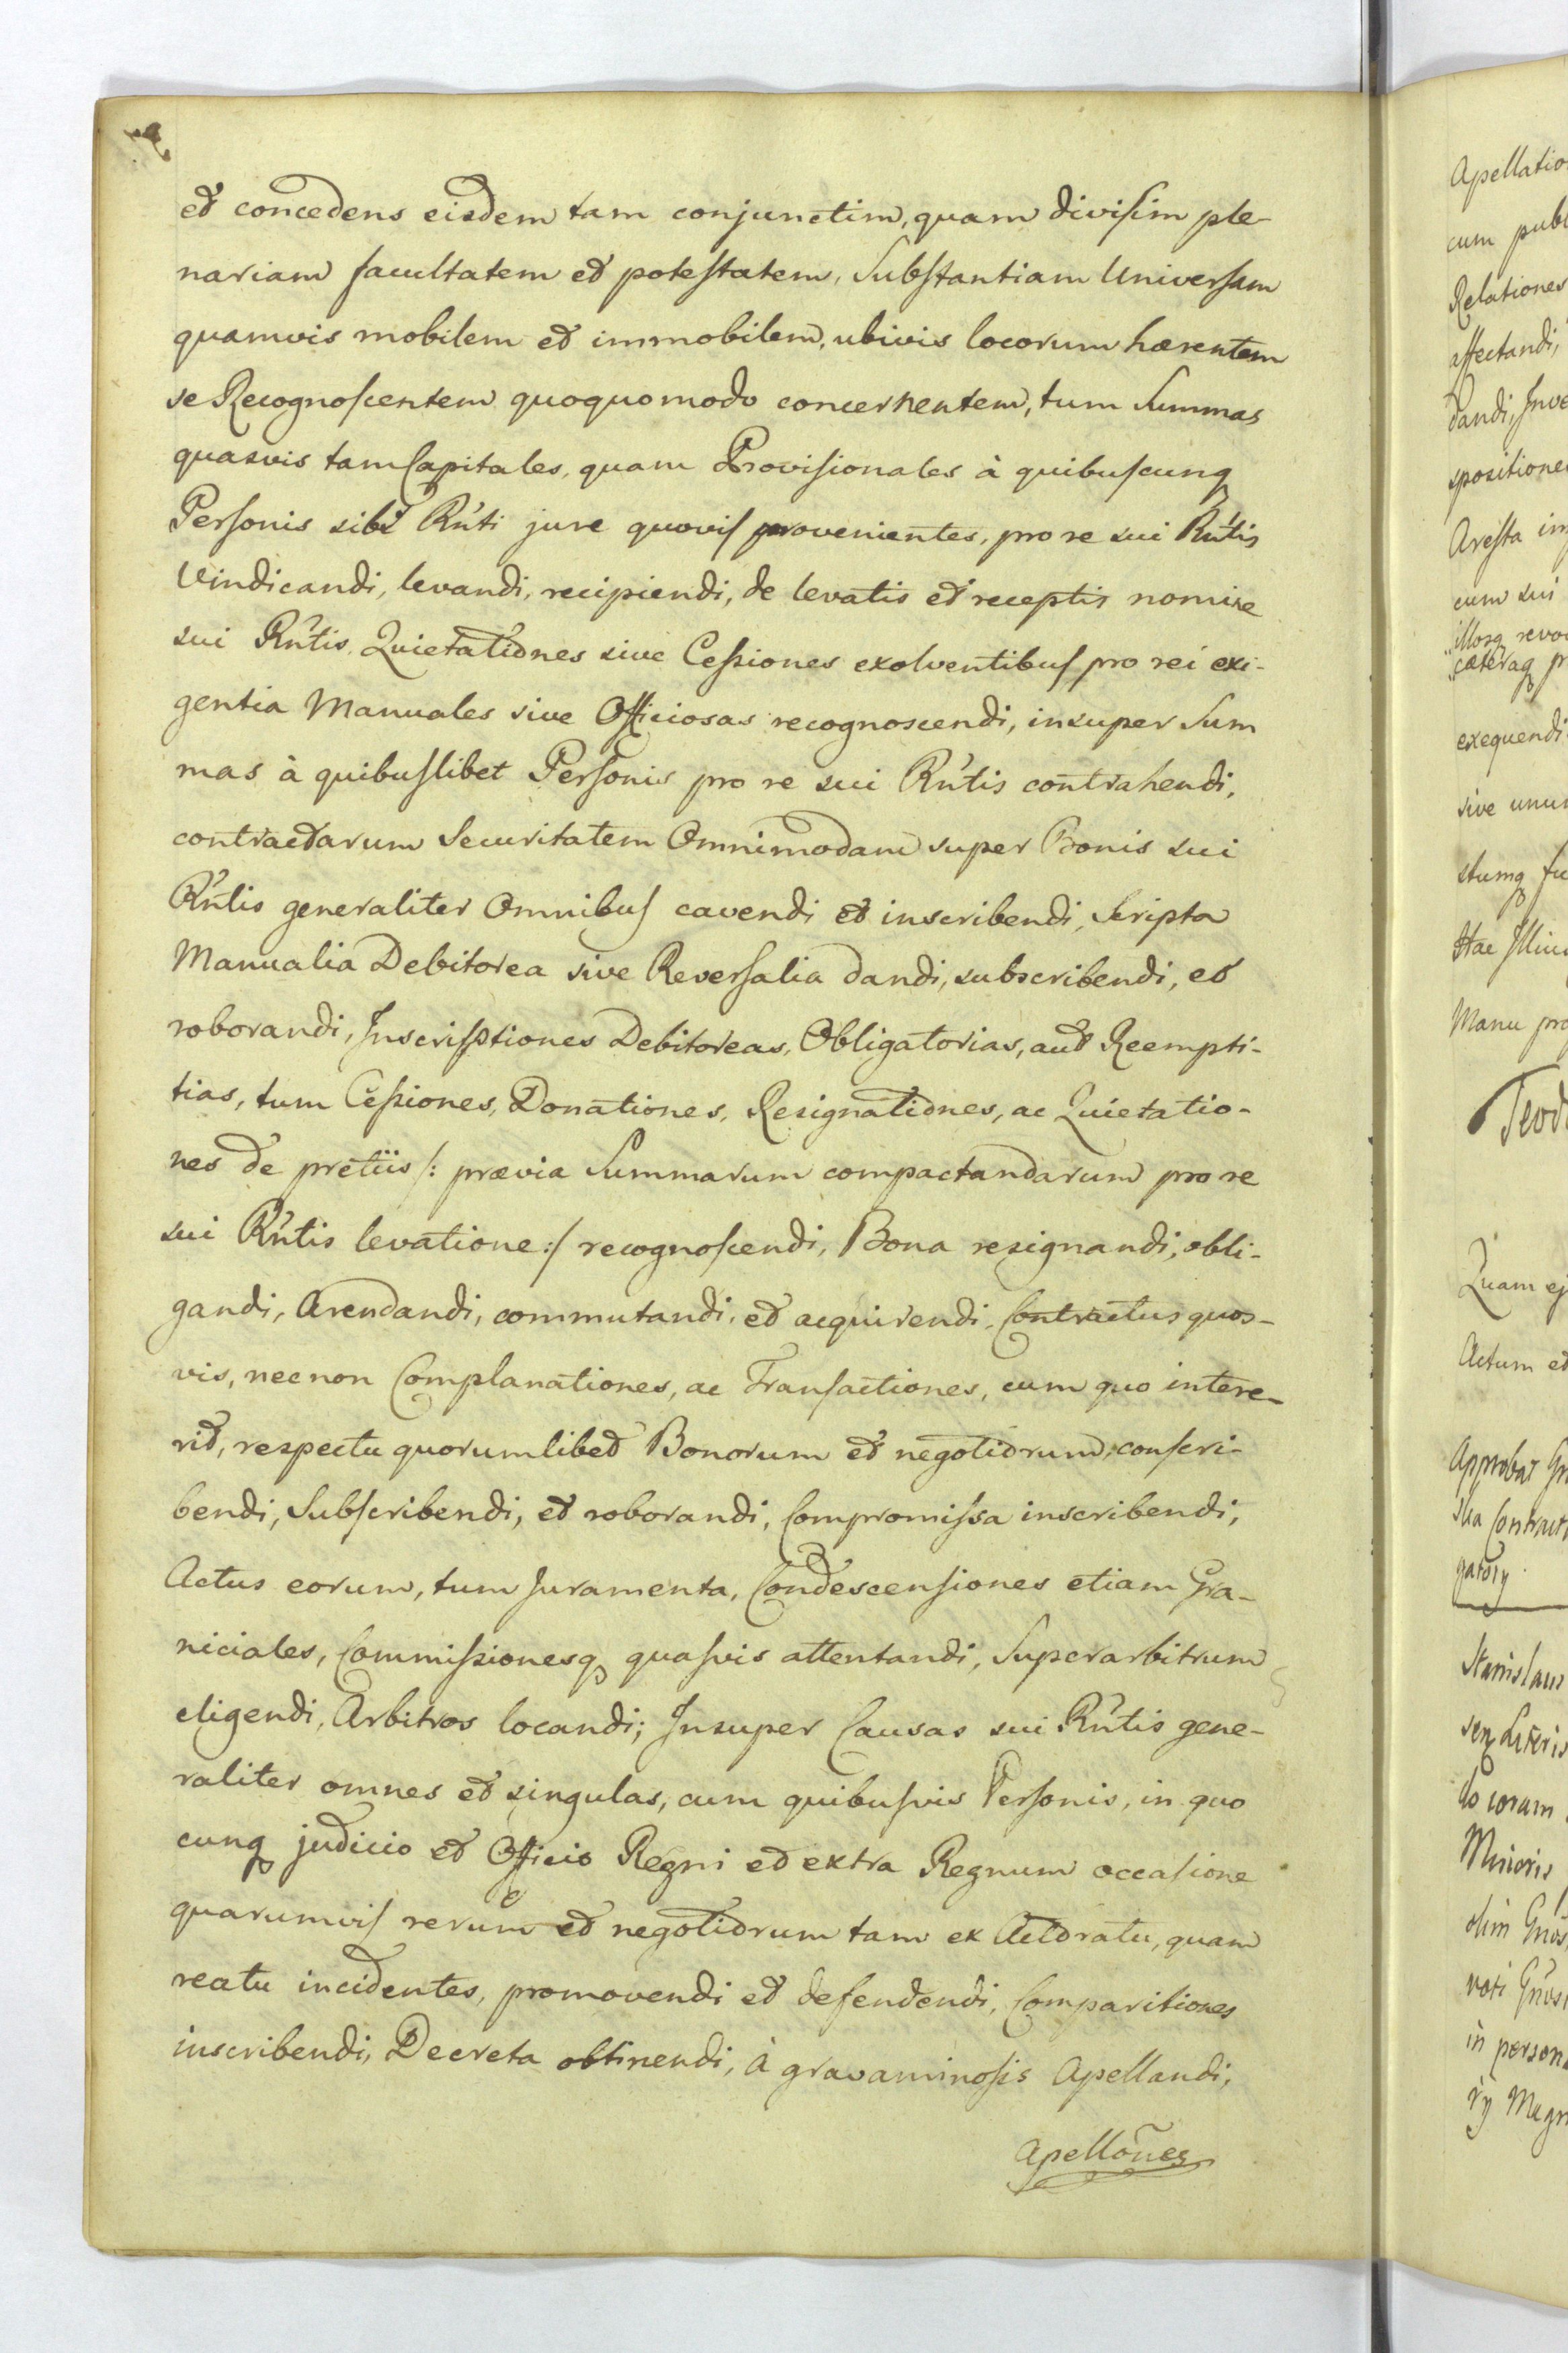 et concedens eisdem tam conjunctim, quam diviſim ple-
nariam facultatem et poteſtatem, Subſtantiam Univerſam
quamvis mobilem et immobilem, ubivis locorum hærentem
se Recognoſcentem quoquomodo concernentem, tum Summas
quasvis tam Capitales, quam Proviſionales à quibuſcunq
Perſonis sibi Rn̄ti jure quoviſ provenientes, pro re sui Rn̄tis
Vindicandi, levandi, recipiendi, de levatis et receptis nomine
sui Rn̄tis Quietationes sive Ceſsiones exolventibuſ pro rei exi-
gentia Manuales sive Officiosas recognoscendi, insuper Sum
mas à quibuſlibet Perſonis pro re sui Rn̄tis contrahendi,
contractarum Securitatem Omnimodam super Bonis sui
Rn̄tis generaliter Omnibuſ cavendi et inscribendi, Scripta
Manualia Debitorea sive Reverſalia dandi, subscribendi, et
roborandi, Inscriptiones Debitoreas, Obligatorias, aut Reempti-
tias, tum Ceſsiones, Donationes, Resignationes, ac Quietatio-
nes de pretiis /: prævia Summarum compactandarum pro re
sui Rn̄tis levatione :/ recognoſcendi, Bona resignandi, obli-
gandi, Arendandi, commutandi, et acquirendi, Contractus quos-
vis, necnon Complanationes, ac Tranſactiones, cum quo intere-
rit, respectu quorumlibet Bonorum et negotiorum, conſcri-
bendi, Subſcribendi, et roborandi, Compromiſsa inscribendi,
Actus eorum, tum Juramenta, Condescenſiones etiam Gra-
niciales, Commiſsionesq quaſvis attentandi, Superarbitrum
eligendi, Arbitros locandi; Insuper Causas sui Rn̄tis gene-
raliter omnes et singulas, cum quibuſvis Perſonis, in quo
cunq judicio et Officio Regni et extra Regnum occaſione
quarumviſ rerum et negotiorum tam ex Actoratu, quam
reatu incidentes, promovendi et defendendi, Comparitiones
inscribendi, Decreta obtinendi, à gravaminoſis Apellandi,
Apellōnes
Apellatio
cum publ
Relationes
affectandi,
dandi, Inve
spositione
Areſta im
cum sui
illosq revo
cæteraq pr
exequendi
sive unu
stumq fu
Hac Illiu
Manu pro
Teod
Quam ej
Actum et
Approbat Gr
sua Contract
gatory
Stanislaus
Literis
coram
Minoris
olim Gn̄os
in person
ry Magn